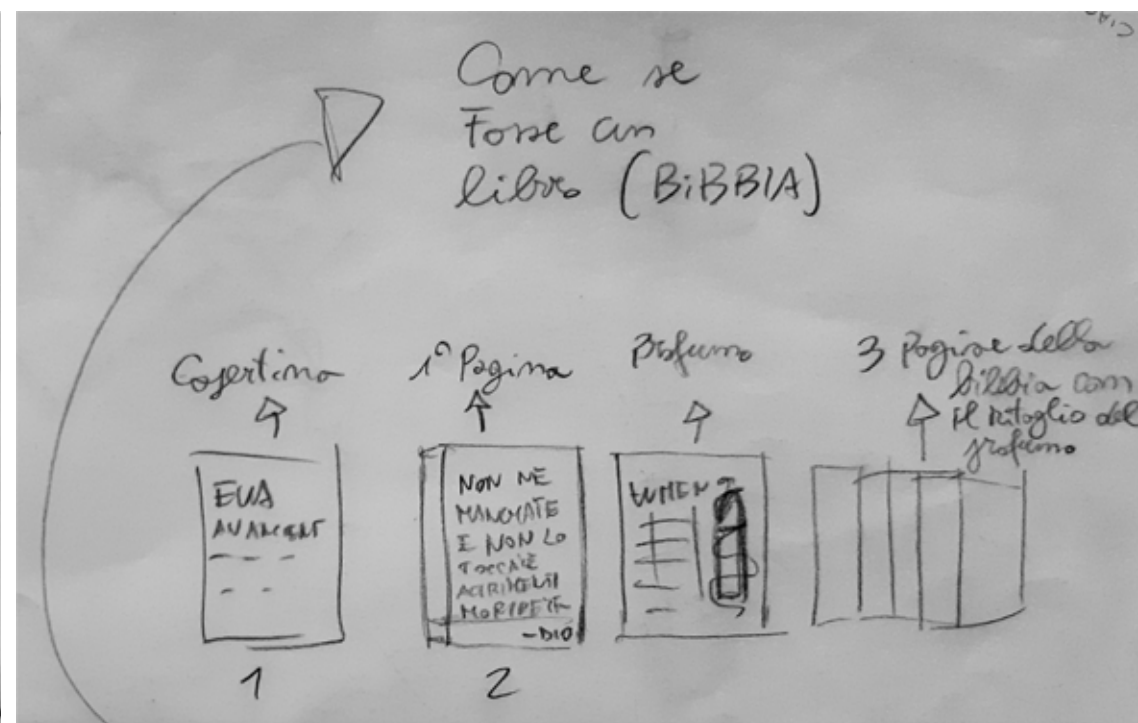 Come se
Fosse un
libro (BiBBIA)
Copertina
1° Pagina
Profumo
3 Pagine della
bibbia con
il ritaglio del
profumo
EVA
NON NE
MANGIATE
E NON LO
TOCCATE
ALTRIMENTI
MORIRETE
-DIO
1
2